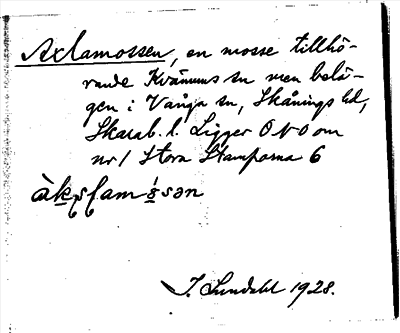 Axlamossen, en mosse tillhö-
rande Kvänums sn men belä-
gen i Vånga sn, Skånings hd,
Skarab. l. Ligger ONO om
nr 1 Stora Stamporna 6
J. Lundahl 1928.